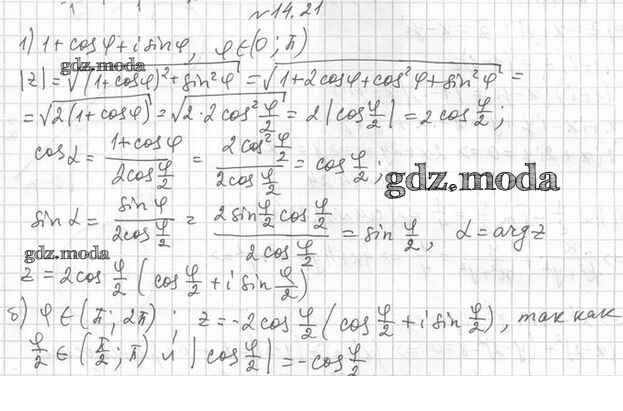 №14.21
1) 1+cosφ+i sinφ, φ∈(0; π)
gdz.moda
|z|=√((1+cosφ)²+sin²φ) = √(1+2cosφ+cos²φ+sin²φ) =
=√(2(1+cosφ))=√(2·2cos²φ/2) = 2|cosφ/2| = 2cosφ/2;
cosα = (1+cosφ)/(2cosφ/2) = (2cos²φ/2)/(2cosφ/2) = cosφ/2;
gdz.moda
sinα = sinφ/(2cosφ/2) = (2sinφ/2 cosφ/2)/(2cosφ/2) = sinφ/2, α=argz
gdz.moda
z = 2cosφ/2 (cosφ/2 + i sinφ/2)
б) φ∈(π; 2π); z=-2cosφ/2 (cosφ/2 + i sinφ/2), так как
φ/2 ∈ (π/2; π) и |cosφ/2| = -cosφ/2